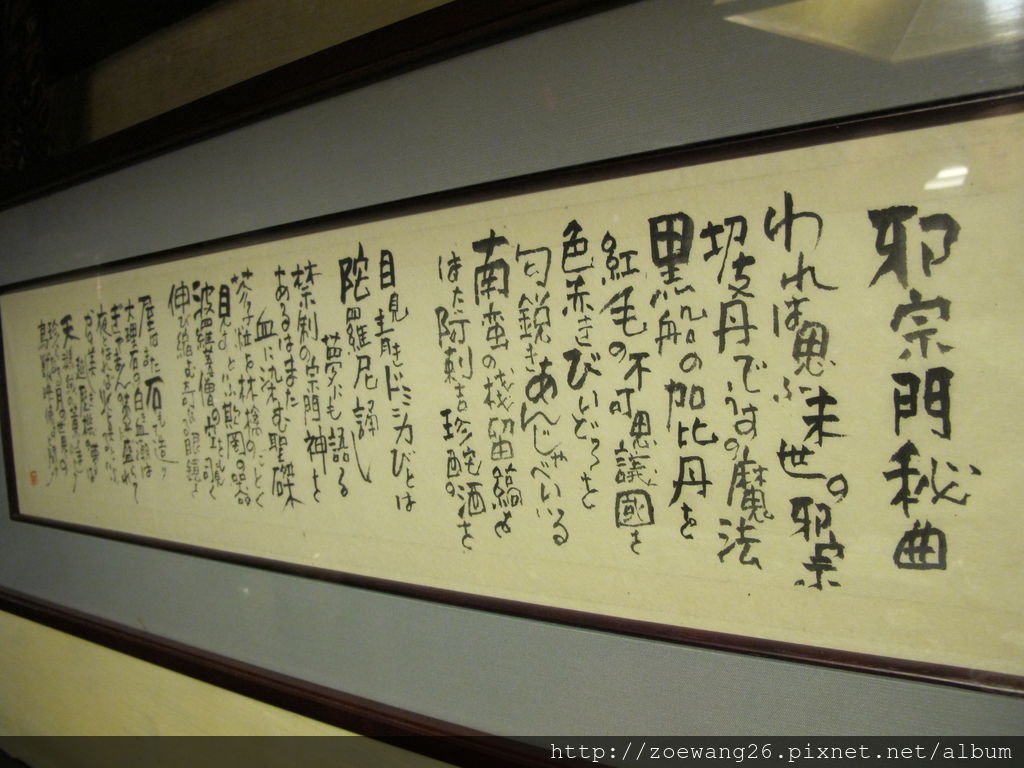 邪宗門秘曲
われは思ふ末世の邪宗
切支丹でうすの魔法
黒船の加比丹を
紅毛の不可思議國を
色赤きびいどろを
匂鋭きあんじゃべいいる
南蛮の桟留縞を
はた阿刺吉珍酡の酒を
目見青きドミニカびとは
陀羅尼誦し
夢にも語る
禁制の宗門神を
あるはまた
血に染む聖磔
芥子粒を林檎のごとく
見すといふ欺罔の器
波羅葦僧の空をも覗く
伸び縮む奇なる眼鏡を
屋はまた石もて造り
大理石の白き血潮は
ぎやまんの壺に盛られて
夜となれば火点るといふ
http://zoewang26.pixnet.net/album